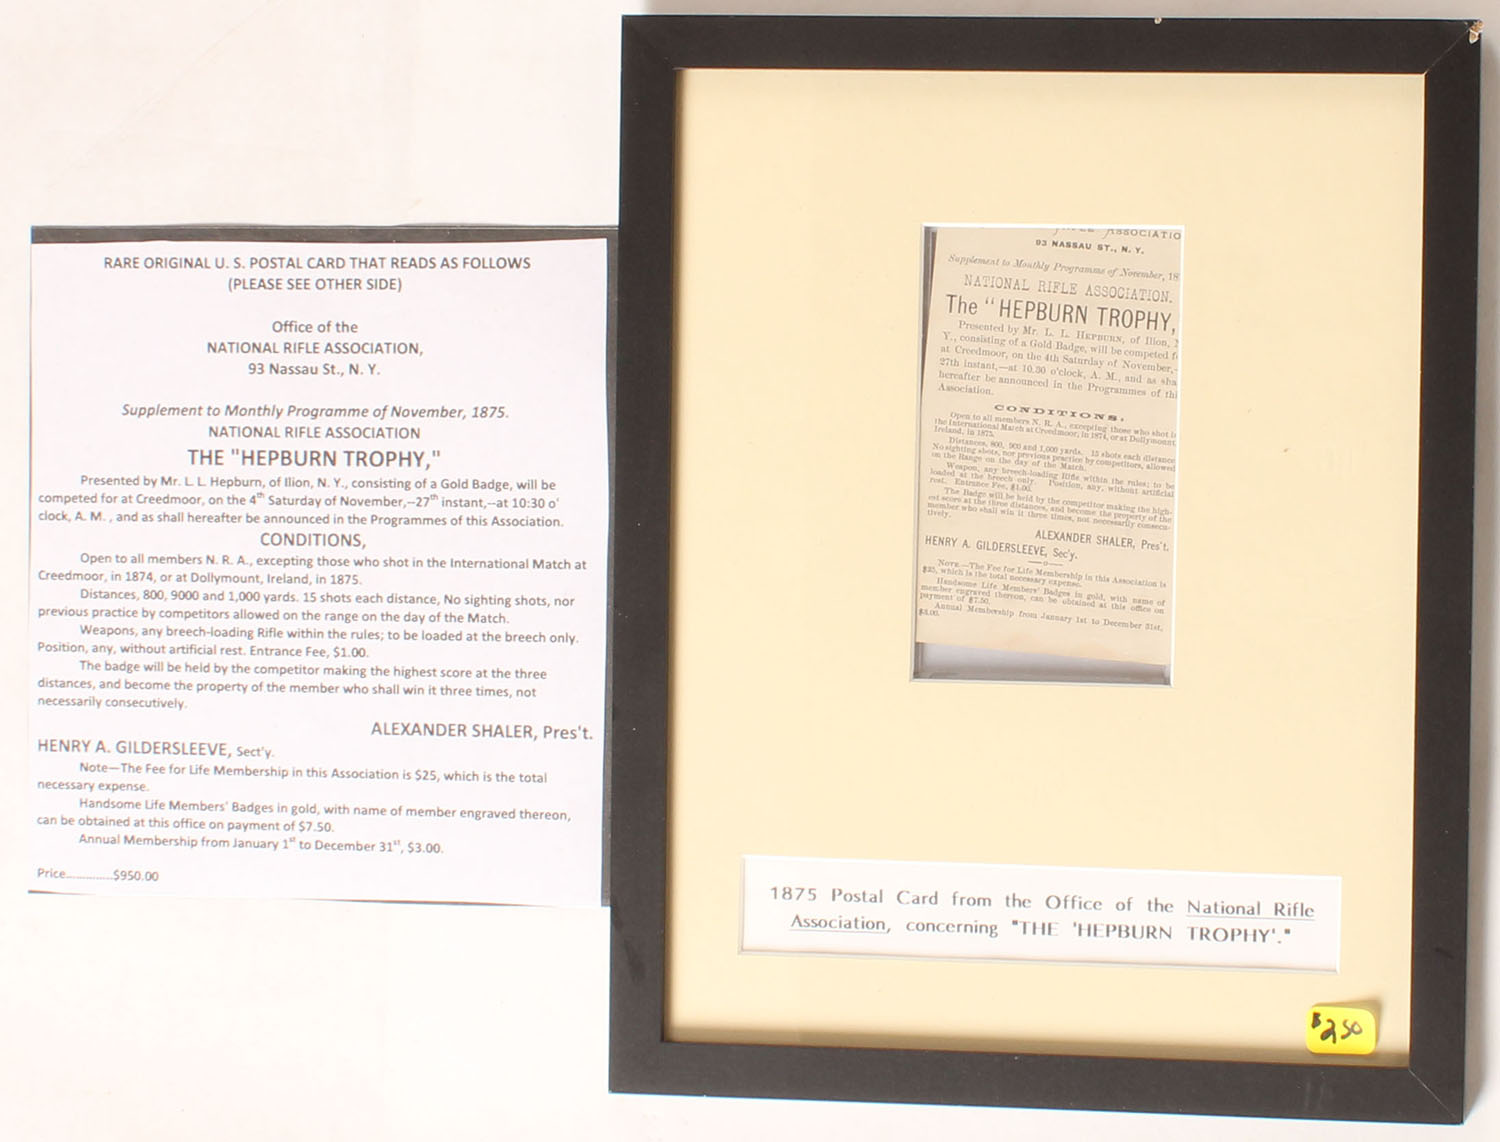 RARE ORIGINAL U. S. POSTAL CARD THAT READS AS FOLLOWS
(PLEASE SEE OTHER SIDE)
Office of the
NATIONAL RIFLE ASSOCIATION,
93 Nassau St., N. Y.
Supplement to Monthly Programme of November, 1875.
NATIONAL RIFLE ASSOCIATION
THE "HEPBURN TROPHY,"
Presented by Mr. L. L. Hepburn, of Ilion, N. Y., consisting of a Gold Badge, will be
competed for at Creedmoor, on the 4th Saturday of November,--27th instant,--at 10:30 o'
clock, A. M. , and as shall hereafter be announced in the Programmes of this Association.
CONDITIONS,
Open to all members N. R. A., excepting those who shot in the International Match at
Creedmoor, in 1874, or at Dollymount, Ireland, in 1875.
Distances, 800, 9000 and 1,000 yards. 15 shots each distance, No sighting shots, nor
previous practice by competitors allowed on the range on the day of the Match.
Weapons, any breech-loading Rifle within the rules; to be loaded at the breech only.
Position, any, without artificial rest. Entrance Fee, $1.00.
The badge will be held by the competitor making the highest score at the three
distances, and become the property of the member who shall win it three times, not
necessarily consecutively.
ALEXANDER SHALER, Pres't.
HENRY A. GILDERSLEEVE, Sect'y.
Note—The Fee for Life Membership in this Association is $25, which is the total
necessary expense.
Handsome Life Members' Badges in gold, with name of member engraved thereon,
can be obtained at this office on payment of $7.50.
Annual Membership from January 1st to December 31st, $3.00.
Price..............$950.00
ASSOCIATIO
93 NASSAU ST., N. Y.
Supplement to Monthly Programme of November, 18
NATIONAL RIFLE ASSOCIATION.
The "HEPBURN TROPHY,
Presented by Mr. L. L. HEPBURN, of Ilion,
Y., consisting of a Gold Badge, will be competed f
at Creedmoor, on the 4th Saturday of November,-
27th instant,—at 10.30 o'clock, A. M., and as sha
hereafter be announced in the Programmes of thi
Association.
CONDITIONS.
Open to all members N. R. A., excepting those who shot i
the International Match at Creedmoor, in 1874, or at Dollymount
Ireland, in 1875.
Distances, 800, 900 and 1,000 yards. 15 shots each distance
No sighting shots, nor previous practice by competitors, allowed
on the Range on the day of the Match.
Weapon, any breech-loading Rifle within the rules; to be
loaded at the breech only. Position, any, without artificial
rest. Entrance Fee, $1.00.
The Badge will be held by the competitor making the high-
est score at the three distances, and become the property of the
member who shall win it three times, not necessarily consecu-
tively.
ALEXANDER SHALER, Pres't.
HENRY A. GILDERSLEEVE, Sec'y.
NOTE.—The Fee for Life Membership in this Association is
$25, which is the total necessary expense.
Handsome Life Members' Badges in gold, with name of
member engraved thereon, can be obtained at this office on
payment of $7.50.
Annual Membership from January 1st to December 31st,
$3.00.
1875 Postal Card from the Office of the National Rifle
Association, concerning "THE 'HEPBURN TROPHY'."
$250